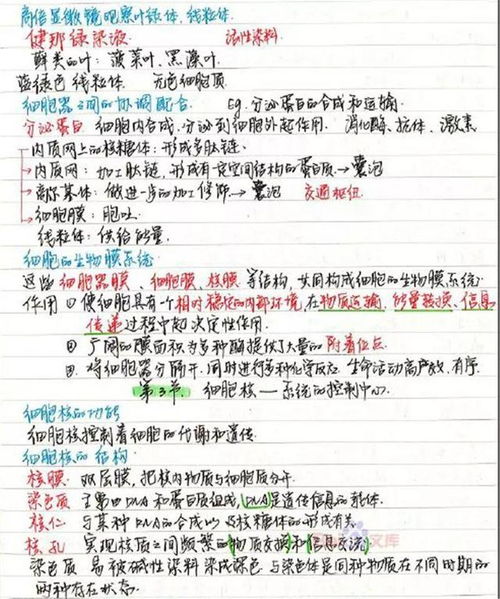 高倍显微镜观察叶绿体、线粒体
健那绿染液 活性染料
鲜类的叶: 菠菜叶、黑藻叶
蓝绿色 线粒体 无色细胞质
细胞器之间的协调配合 Eg. 分泌蛋白的合成和运输
分泌蛋白 细胞内合成, 分泌到细胞外起作用. 消化酶、抗体、激素
内质网上的核糖体: 形成多肽链
内质网: 加工肽链, 形成有一定空间结构的蛋白质→囊泡
高尔基体: 做进一步的加工修饰→囊泡 交通枢纽
细胞膜: 胞吐.
线粒体: 供给能量.
细胞的生物膜系统
这些细胞器膜、细胞膜、核膜等结构, 共同构成细胞的生物膜系统
作用 ① 使细胞具有一个相对稳定的内部环境, 在物质运输、能量转换、信息
传递过程中起决定性作用.
② 广阔的膜面积为多种酶提供了大量的附着位点
③ 将细胞器分隔开, 同时进行多种化学反应 生命活动高效、有序.
第3节. 细胞核—系统的控制中心.
细胞核的功能
细胞核控制着细胞的代谢和遗传.
细胞核的结构
核膜 双层膜, 把核内物质与细胞质分开.
染色质 主要由DNA和蛋白质组成, DNA是遗传信息的载体.
核仁 与某种RNA的合成以及核糖体的形成有关.
核孔 实现核质之间频繁的物质交换和信息交流 文库
染色质 易被碱性染料染成深色 与染色体是同种物质在不同时期的
两种存在状态.